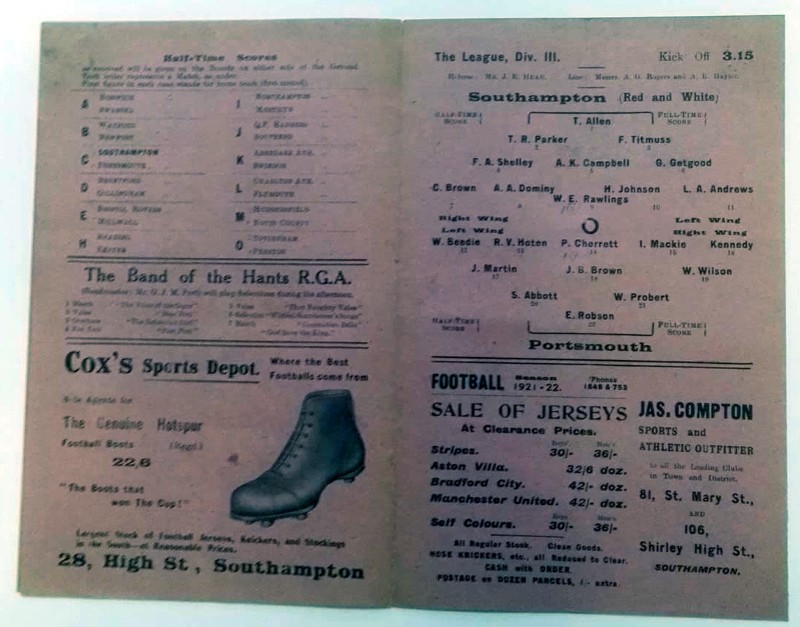 Half-Time Scores
as received will be given on the Boards on either side of the Ground.
Each letter represents a Match, as under.
First figure in each case stands for home team (first named).
A
NORWICH
SWINDON
I
NORTHAMPTON
B
WATFORD
NEWPORT
J
Q.P. RANGERS
SOUTHEND
C
SOUTHAMPTON
PORTSMOUTH
K
ABERDARE ATH.
D
BRENTFORD
GILLINGHAM
L
CHARLTON ATH.
PLYMOUTH
E
BRISTOL ROVERS
MILLWALL
M
HUDDERSFIELD
NOTTS COUNTY
H
READING
EXETER
O
TOTTENHAM
PRESTON
The Band of the Hants R.G.A.
will play Selections during the afternoon.
"God Save the King."
Cox's Sports Depot.
Where the Best
Footballs come from
Sole Agents for
The Genuine Hotspur
Football Boots (Regd.)
22/6
"The Boots that
won The Cup!"
Largest Stock of Football Jerseys, Knickers, and Stockings
in the South—at Reasonable Prices.
28, High St, Southampton
The League, Div. III. Kick Off 3.15
Referee: Mr. J. E. Line: Messrs. A. G. Rogers and A. E.
Southampton (Red and White)
HALF-TIME SCORE
FULL-TIME SCORE
T. Allen
T. R. Parker F. Titmuss
2 3
F. A. Shelley A. K. Campbell G. Getgood
4 5 6
C. Brown A. A. Dominy H. Johnson L. A. Andrews
W. E. Rawlings
7 8 9 10 11
Right Wing Left Wing
Left Wing Right Wing
W. Beedie R. V. Hoten P. Cherrett I. Mackie Kennedy
12 13 14 15 16
J. Martin J. B. Brown W. Wilson
17 18 19
S. Abbott W. Probert
20 21
E. Robson
22
HALF-TIME SCORE
FULL-TIME SCORE
Portsmouth
FOOTBALL Season 1921-22. 'Phones 1848 & 753
SALE OF JERSEYS
At Clearance Prices.
Boys' Men's
Stripes. 30/- 36/-
Aston Villa. 32/6 doz.
Bradford City. 42/- doz.
Manchester United. 42/- doz.
Boys' Men's
Self Colours. 30/- 36/-
All Regular Stock. Clean Goods.
HOSE KNICKERS, etc., all Reduced to Clear.
CASH with ORDER.
POSTAGE on DOZEN PARCELS, 1/- extra.
JAS. COMPTON
SPORTS and
ATHLETIC OUTFITTER
to all the Leading Clubs
in Town and District.
81, St. Mary St.,
AND
106,
Shirley High St.,
SOUTHAMPTON.